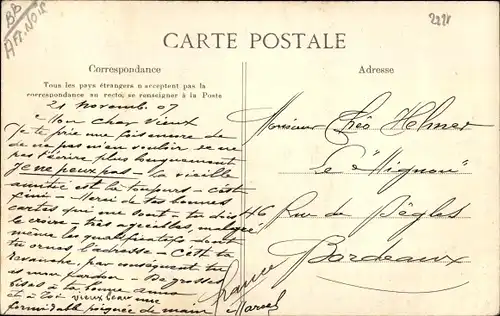 BB
Aff. Noir
2221
CARTE POSTALE
Correspondance
Tous les pays étrangers n'acceptent pas la
correspondance au recto, se renseigner à la Poste
Adresse
21 Novemb. 07
Mon cher Vieux
Je te prie une fois encore de
de ne pas m'en vouloir de ne
pas t'écrire plus longuement
Je ne peux pas - la vieille
amitié est là toujours - c'est
fini - Merci de tes bonnes
cartes qui me sont - tu dois
le croire - très agréables, malgré
même les qualificatifs dont
tu ornes l'adresse - C'est ta
revanche, par conséquent tu
es mon pardon - De grosses
bises à ta bonne
et à toi vieux beau une
formidable poignée de main
Marcel
France
Monsieur Théo Helmer
Le "Mignon"
46 Rue de Bègles
Bordeaux